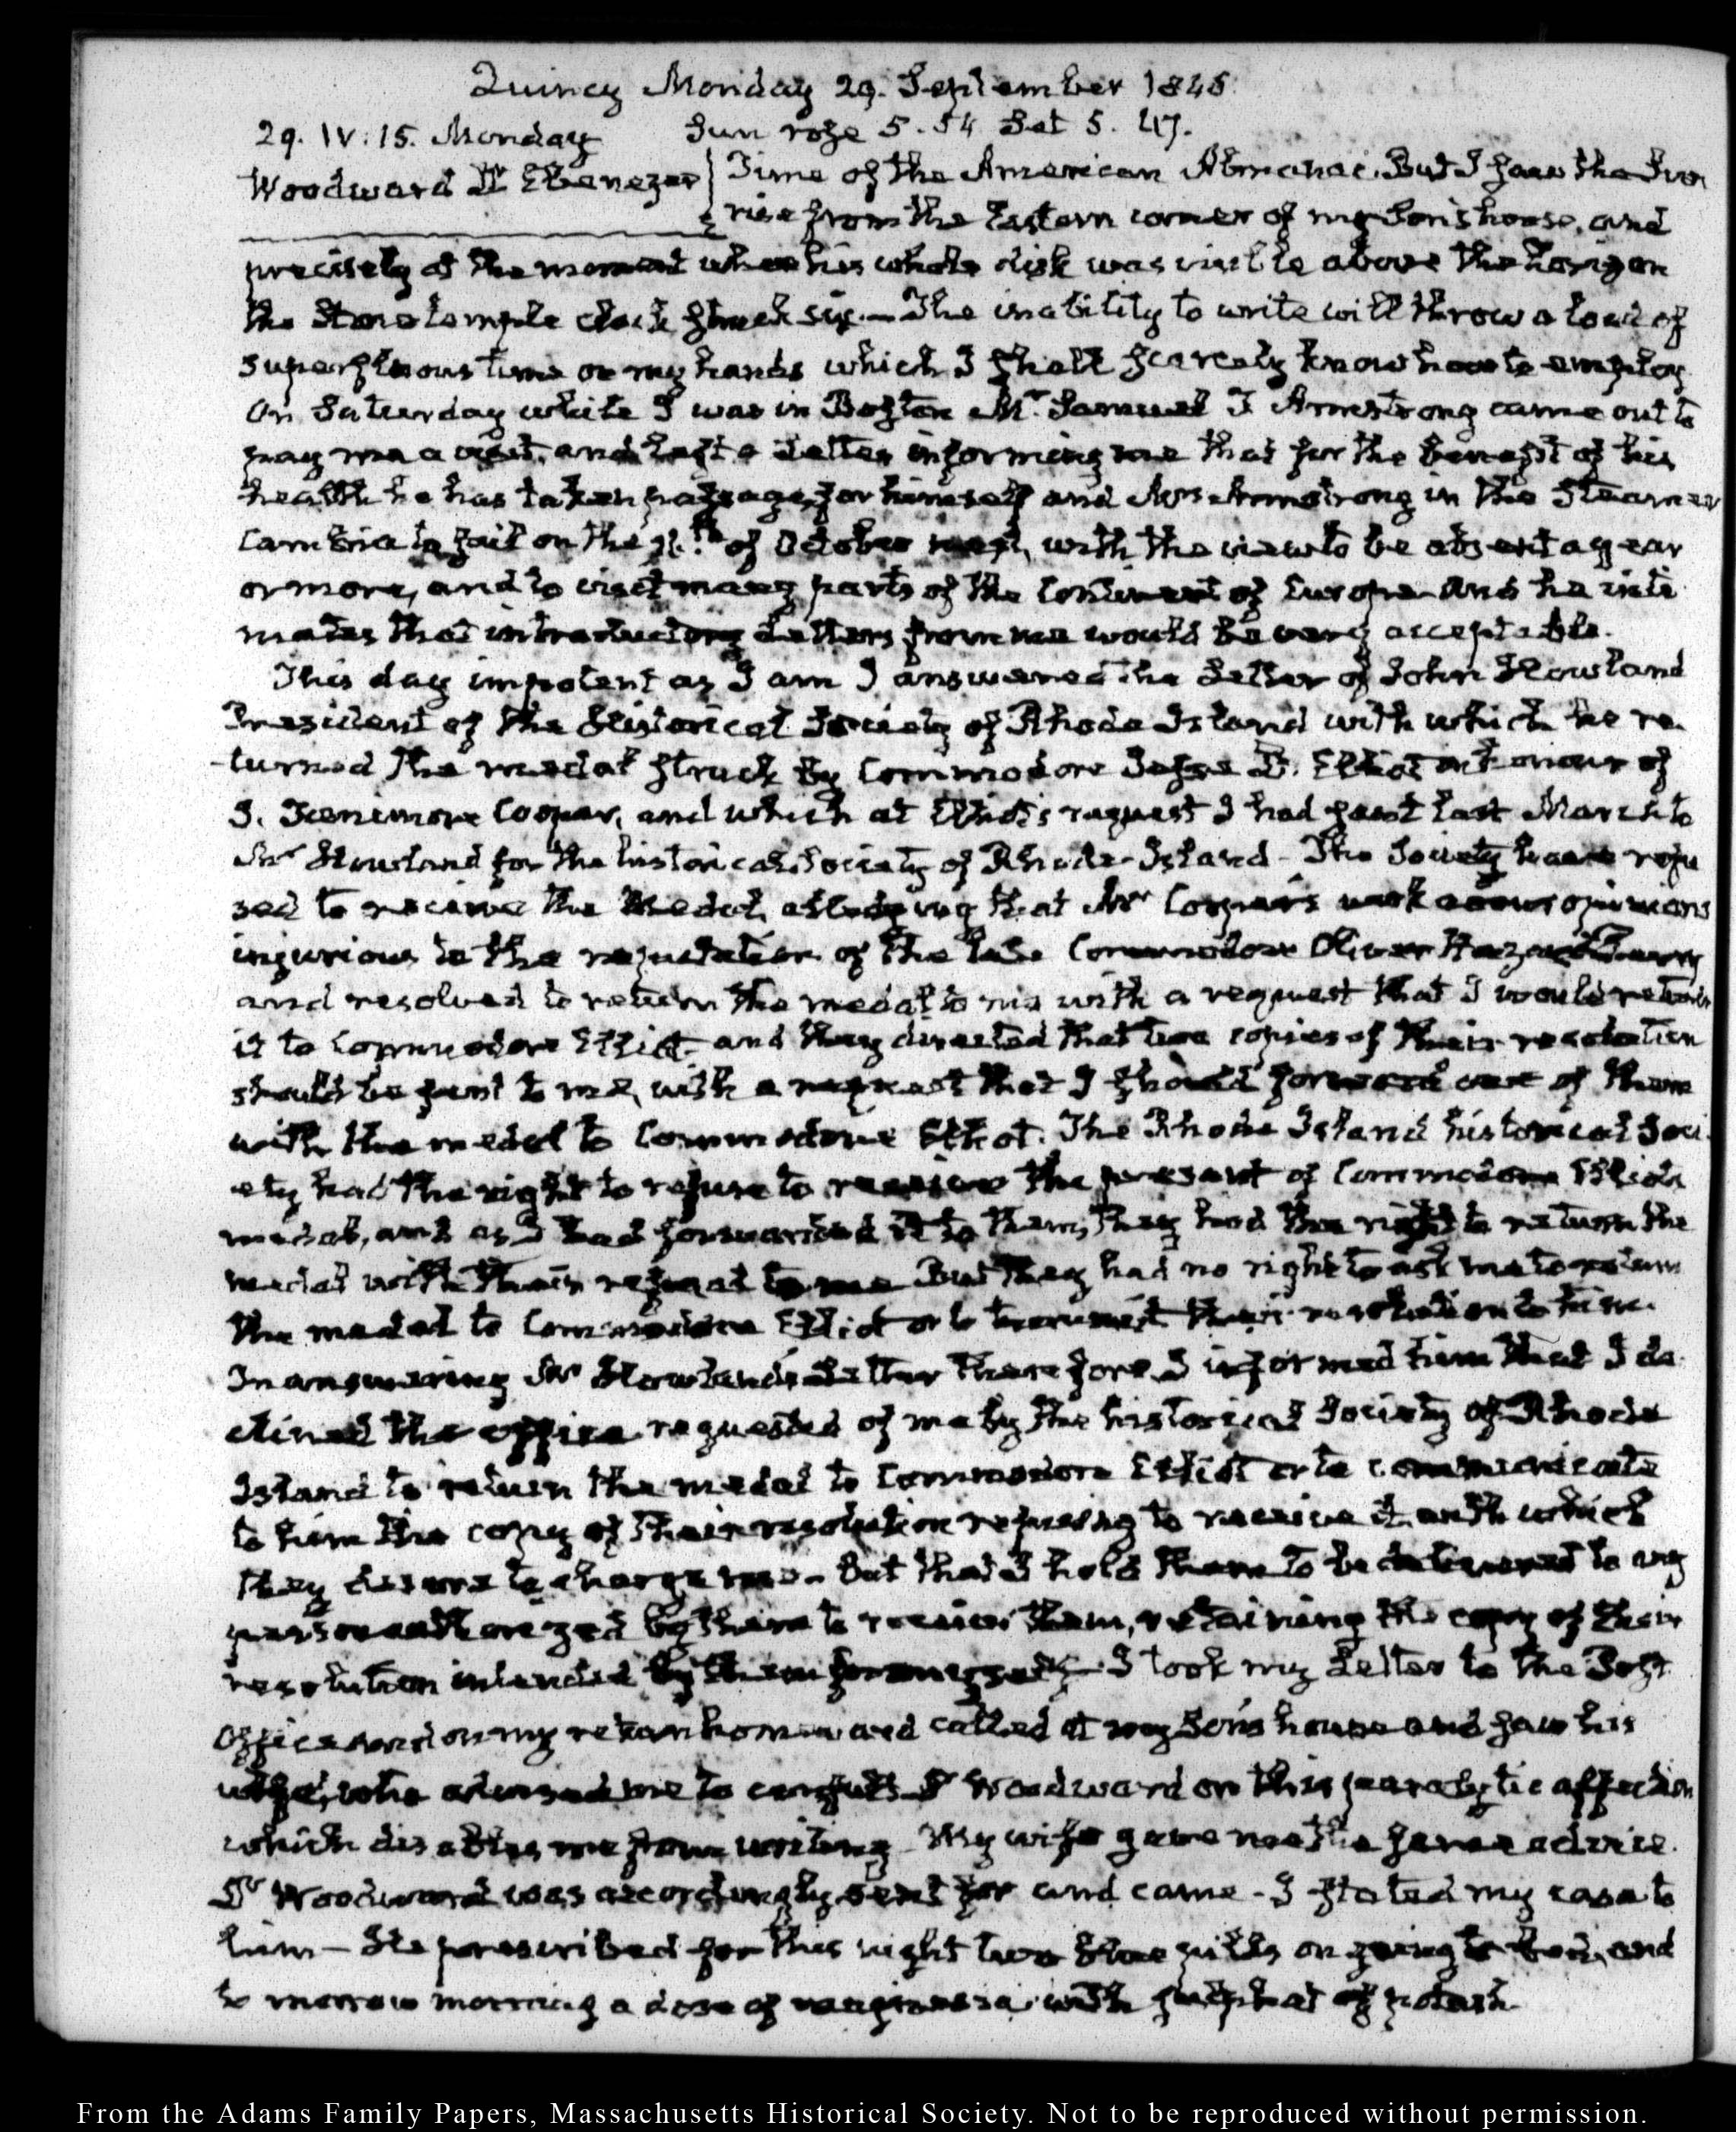 Quincy Monday 29. September 1845.
29. IV:15. Monday Sun rose 5.54 Set 5.47.
Woodward Dr Ebenezer Time of the American Almanac. But I saw the Sun
rise from the Eastern corner of my Son's house, and
precisely at the moment when his whole disk was visible above the horizon
the Stone temple clock struck six. — The inability to write will throw a load of
superfluous time on my hands which I shall scarcely know how to employ.
On Saturday while I was in Boston Mr. Samuel T Armstrong came out to
pay me a visit, and left a Letter informing me that for the benefit of his
health he has taken passage, for himself and Mrs Armstrong in the Steamer
Cambria to sail on the of October next, with the view to be absent a year
or more, and to visit many parts of the Continent of Europe – And he inti-
mates that introductory Letters from me would be very acceptable.
This day impotent as I am I answered the Letter of John Howland
President of the Historical Society of Rhode Island with which he re-
-turned the medal struck by Commodore Jesse D. Elliot in honour of
J. Fenimore Cooper, and which at Elliot's request I had sent last March to
Mr Howland for the historical Society of Rhode-Island – The Society have refu
sed to receive the Medal, alledging that Mr Cooper's work opinions
injurious to the reputation of the late Commodore Oliver Hazard Perry
and resolved to return the medal to me with a request that I would return
it to Commodore Elliot – and they directed that two copies of their resolution
should be sent to me, with a request that I should forward one of them
with the medal to Commodore Elliot. The Rhode Island historical Soci-
ety had the right to refuse to receive the present of Commodore Elliot's
medal, and as I had forwarded it to them, they had the right to return the
medal with their refusal to me But they had no right to ask me to return
the medal to Commodore Elliot or to transmit their resolution to him.
In answering Mr Howland's Letter therefore, I informed him that I de-
clined the office requested of me by the historical Society of Rhode
Island to return the medal to Commodore Elliot or to communicate
to him the copy of their resolution refusing to receive it, with which
they desire to charge me – But that I hold them to be delivered to any
person authorized by them to receive them, retaining the copy of their
resolution intended by them for myself – I took my Letter to the Post
Office and on my return homeward called at my Son's house and saw his
wife, who advised me to consult Dr Woodward on this paralytic affection
which disables me from writing – My wife gave me the same advice.
Dr Woodward was accordingly sent for and came – I stated my case to
him – He prescribed for this night two blue pills on going to bed, and
to morrow morning a dose of magnesia, with sulphat of potash
From the Adams Family Papers, Massachusetts Historical Society. Not to be reproduced without permission.